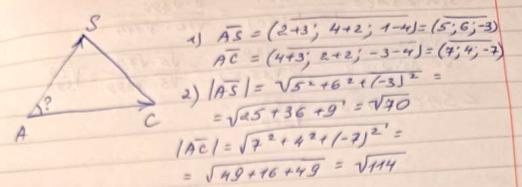 S
?
A
C
1) AS = (2+3; 4+2; 1-4) = (5; 6; -3)
AC = (4+3; 2+2; -3-4) = (7; 4; -7)
2) |AS| = √5²+6²+(-3)² =
= √25+36+9 = √70
|AC| = √7²+4²+(-7)² =
= √49+16+49 = √114